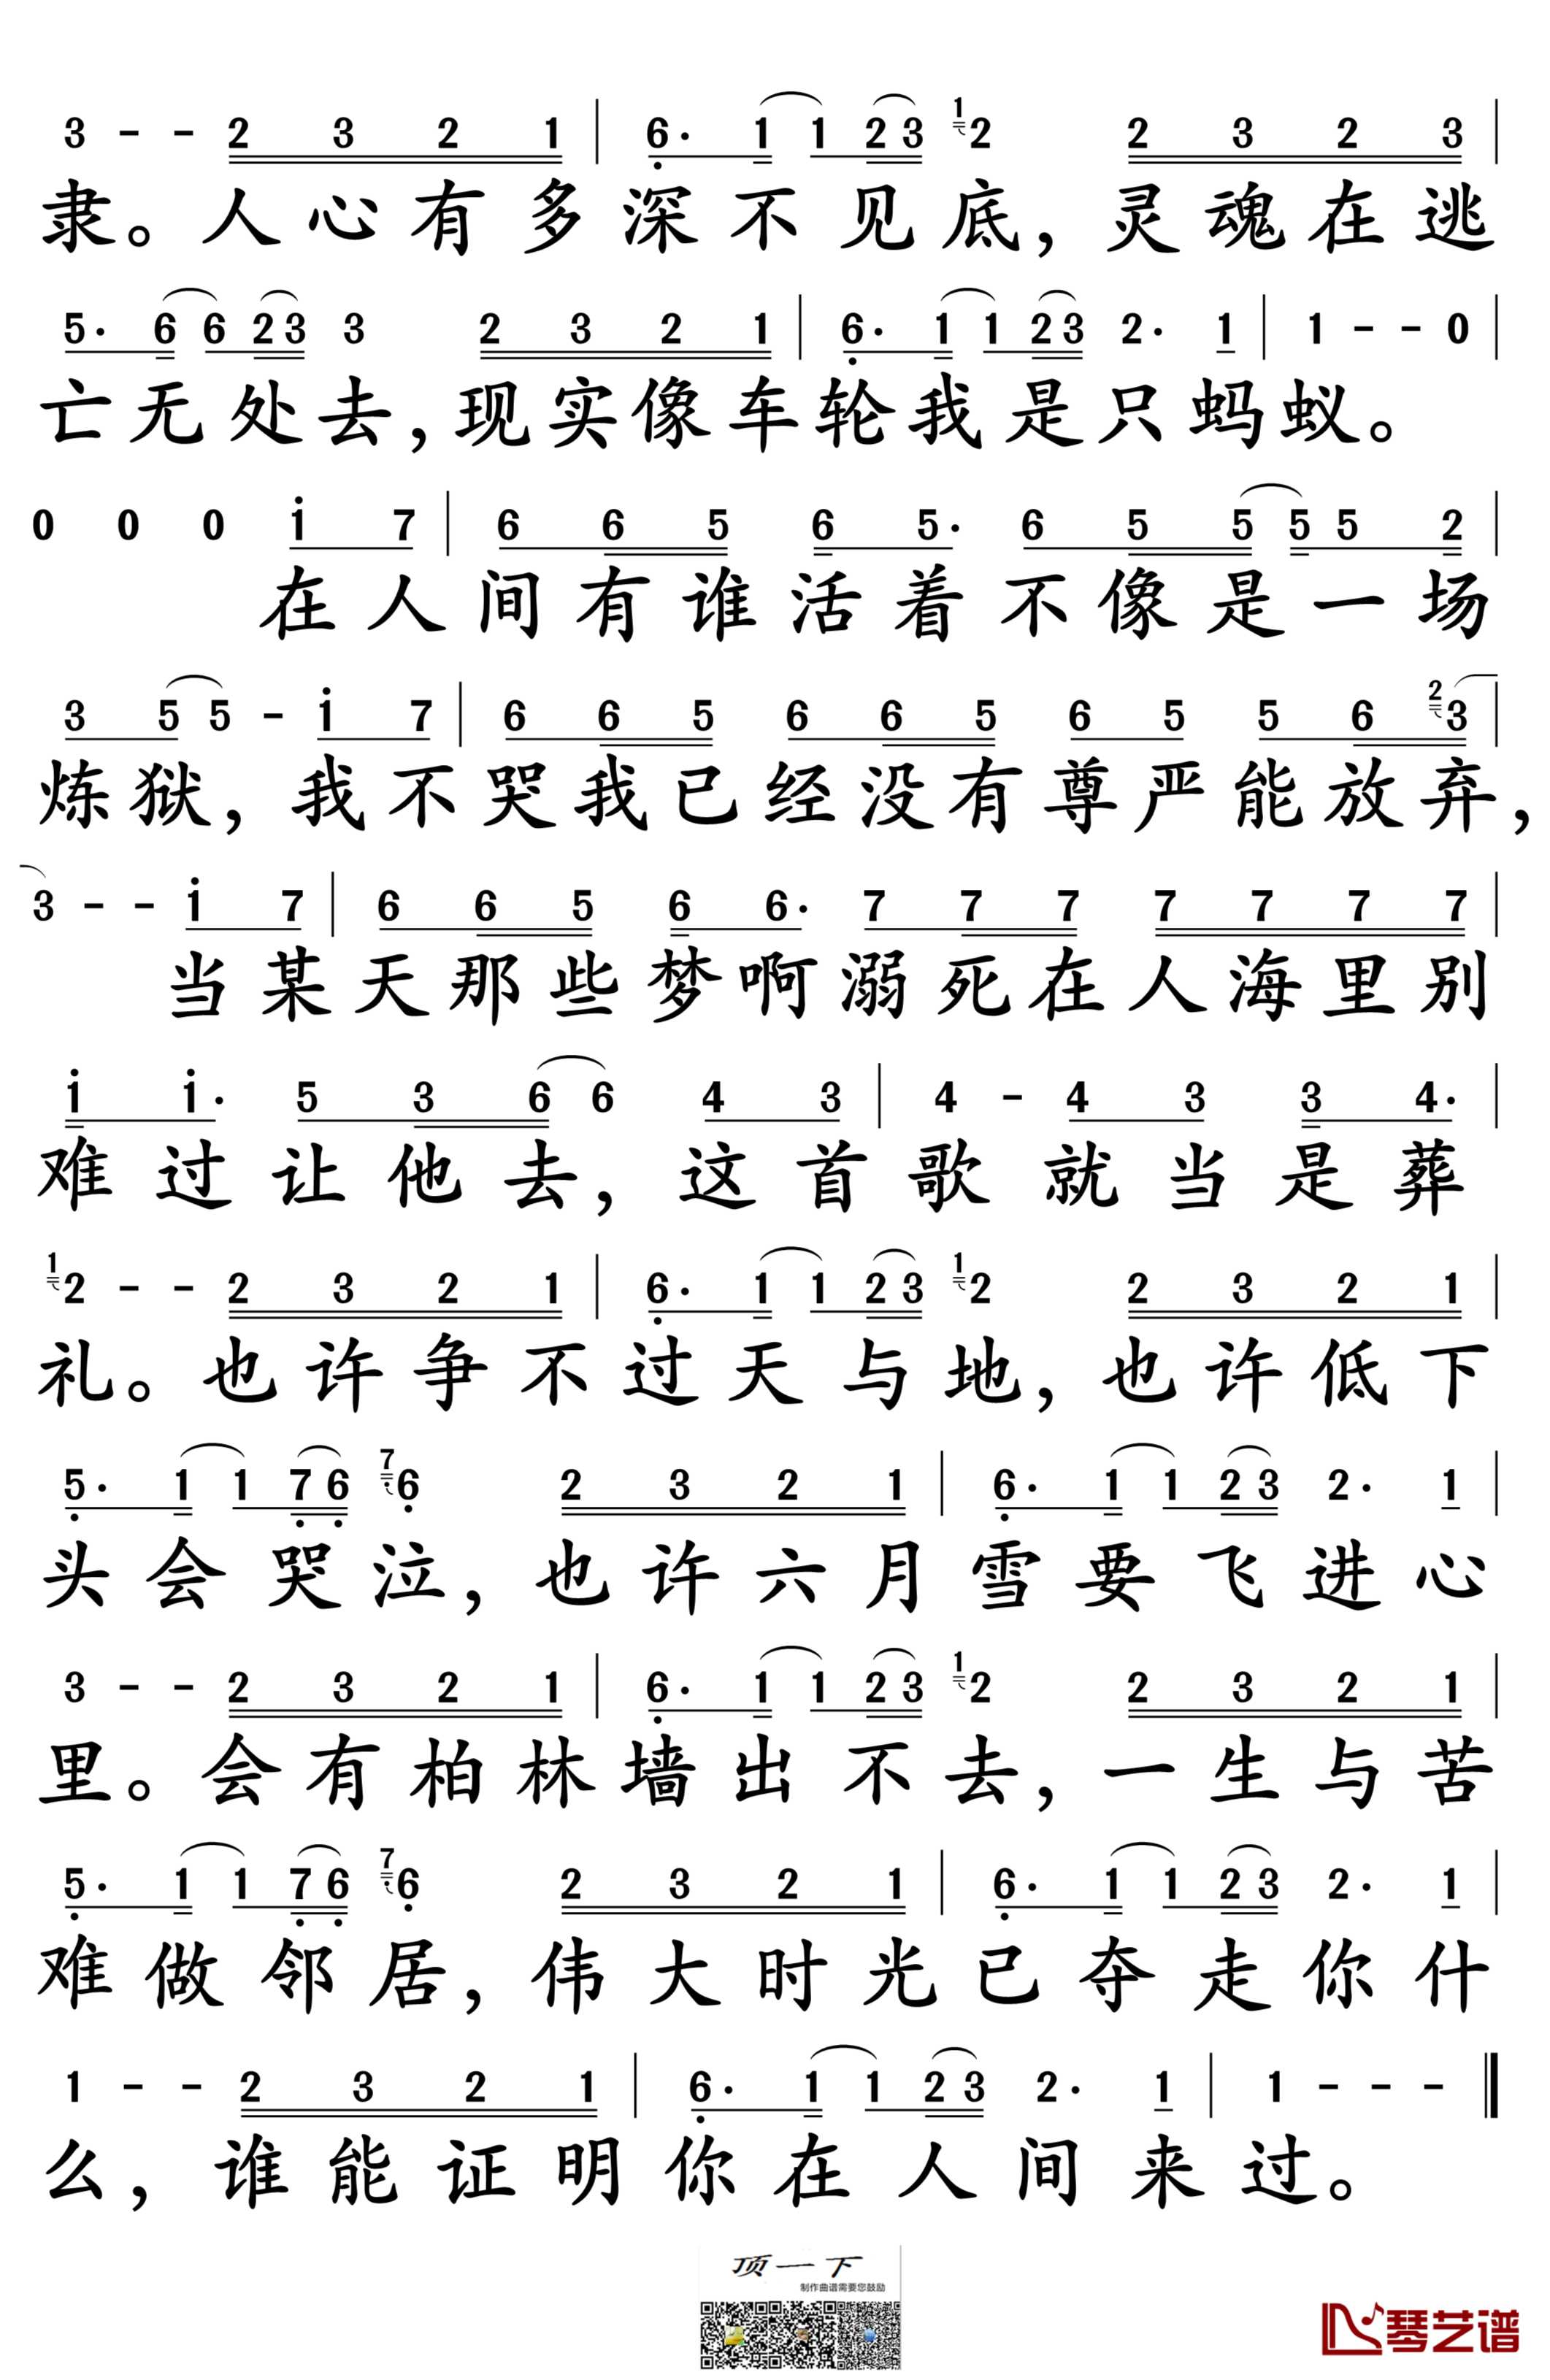 3 - - 2 3 2 1 | 6. 1 1 2 3 1 2 2 3 2 3 |
隶。人心有多深不见底，灵魂在逃
5. 6 6 2 3 3 2 3 2 1 | 6. 1 1 2 3 2. 1 | 1 - - 0 |
亡无处去，现实像车轮我是只蚂蚁。
0 0 0 1 7 | 6 6 5 6 5. 6 5 5 5 5 2 |
在人间有谁活着不像是一场
3 5 5 - 1 7 | 6 6 5 6 6 5 6 5 5 6 2 3 |
炼狱，我不哭我已经没有尊严能放弃，
3 - - 1 7 | 6 6 5 6 6. 7 7 7 7 7 7 7 |
当某天那些梦啊溺死在人海里别
1 1. 5 3 6 6 4 3 | 4 - 4 3 3 4. |
难过让他去，这首歌就当是葬
1 2 - - 2 3 2 1 | 6. 1 1 2 3 1 2 2 3 2 1 |
礼。也许争不过天与地，也许低下
5. 1 1 7 6 7 6 2 3 2 1 | 6. 1 1 2 3 2. 1 |
头会哭泣，也许六月雪要飞进心
3 - - 2 3 2 1 | 6. 1 1 2 3 1 2 2 3 2 1 |
里。会有柏林墙出不去，一生与苦
5. 1 1 7 6 7 6 2 3 2 1 | 6. 1 1 2 3 2. 1 |
难做邻居，伟大时光已夺走你什
1 - - 2 3 2 1 | 6. 1 1 2 3 2. 1 | 1 - - - ‖
么，谁能证明你在人间来过。
顶一下
制作曲谱需要您鼓励
琴艺谱